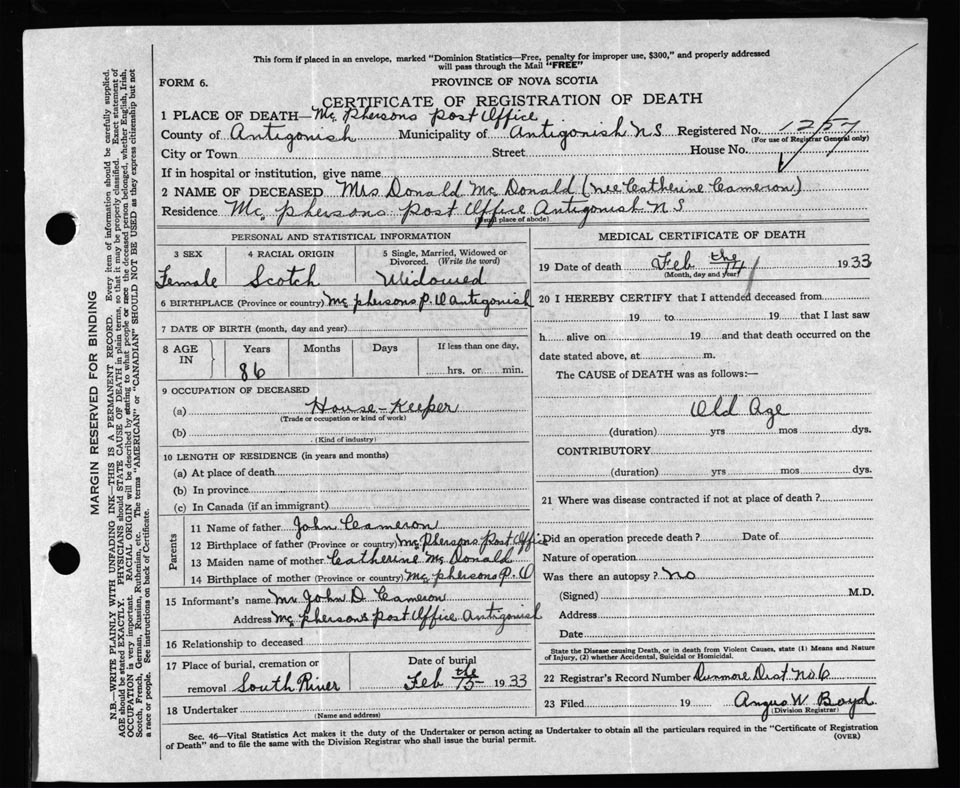 This form if placed in an envelope, marked "Dominion Statistics—Free, penalty for improper use, $300," and properly addressed
will pass through the Mail "FREE"
FORM 6.
PROVINCE OF NOVA SCOTIA
CERTIFICATE OF REGISTRATION OF DEATH
1 PLACE OF DEATH—Mc phersons post Office
County of Antigonish Municipality of Antigonish N S Registered No. 1257
(For use of Registrar General only)
City or Town Street House No.
If in hospital or institution, give name
2 NAME OF DECEASED Mrs Donald Mc Donald (nee Catherine Cameron)
Residence Mc phersons post Office Antigonish N S
(Usual place of abode)
PERSONAL AND STATISTICAL INFORMATION
3 SEX 4 RACIAL ORIGIN 5 Single, Married, Widowed or
Divorced. (Write the word)
Female Scotch Widowed
6 BIRTHPLACE (Province or country) Mc phersons P. O Antigonish
7 DATE OF BIRTH (month, day and year)
8 AGE IN Years Months Days If less than one day,
86 hrs. or min.
9 OCCUPATION OF DECEASED
(a) House-Keeper
(Trade or occupation or kind of work)
(b)
(Kind of industry)
10 LENGTH OF RESIDENCE (in years and months)
(a) At place of death
(b) In province
(c) In Canada (if an immigrant)
Parents
11 Name of father John Cameron
12 Birthplace of father (Province or country) Mc Phersons Post Office
13 Maiden name of mother Catherine Mc Donald
14 Birthplace of mother (Province or country) Mc phersons P. O
15 Informant's name Mr John D. Cameron
Address Mc phersons post Office Antigonish
16 Relationship to deceased
17 Place of burial, cremation or Date of burial
removal South River Feb the 15 1933
18 Undertaker
(Name and address)
MEDICAL CERTIFICATE OF DEATH
19 Date of death Feb the 14 1933
(Month, day and year)
20 I HEREBY CERTIFY that I attended deceased from
19 to 19 that I last saw
h alive on 19 and that death occurred on the
date stated above, at m.
The CAUSE of DEATH was as follows:—
Old Age
(duration) yrs mos dys.
CONTRIBUTORY
(duration) yrs mos dys.
21 Where was disease contracted if not at place of death?
Did an operation precede death? Date of
Nature of operation
Was there an autopsy? No
(Signed) M.D.
Address
Date
State the Disease causing Death, or in death from Violent Causes, state (1) Means and Nature
of Injury, (2) whether Accidental, Suicidal or Homicidal.
22 Registrar's Record Number Dunmore Dist No. 6
23 Filed 19 Angus W Boyd
(Division Registrar)
Sec. 46—Vital Statistics Act makes it the duty of the Undertaker or person acting as Undertaker to obtain all the particulars required in the "Certificate of Registration
of Death" and to file the same with the Division Registrar who shall issue the burial permit.
(OVER)
MARGIN RESERVED FOR BINDING
N.B.—WRITE PLAINLY WITH UNFADING INK—THIS IS A PERMANENT RECORD. Every item of information should be carefully supplied.
AGE should be stated EXACTLY. PHYSICIANS should STATE CAUSE OF DEATH in plain terms, so that it may be properly classified. Exact statement of
OCCUPATION is very important. RACIAL ORIGIN will be described by stating to what people or race the deceased person belonged, whether English, Irish,
Scotch, French, German, Russian, Ruthenian, etc. The terms "AMERICAN" or "CANADIAN" SHOULD NOT BE USED as they express citizenship but not
a race or people. See instructions on back of Certificate.